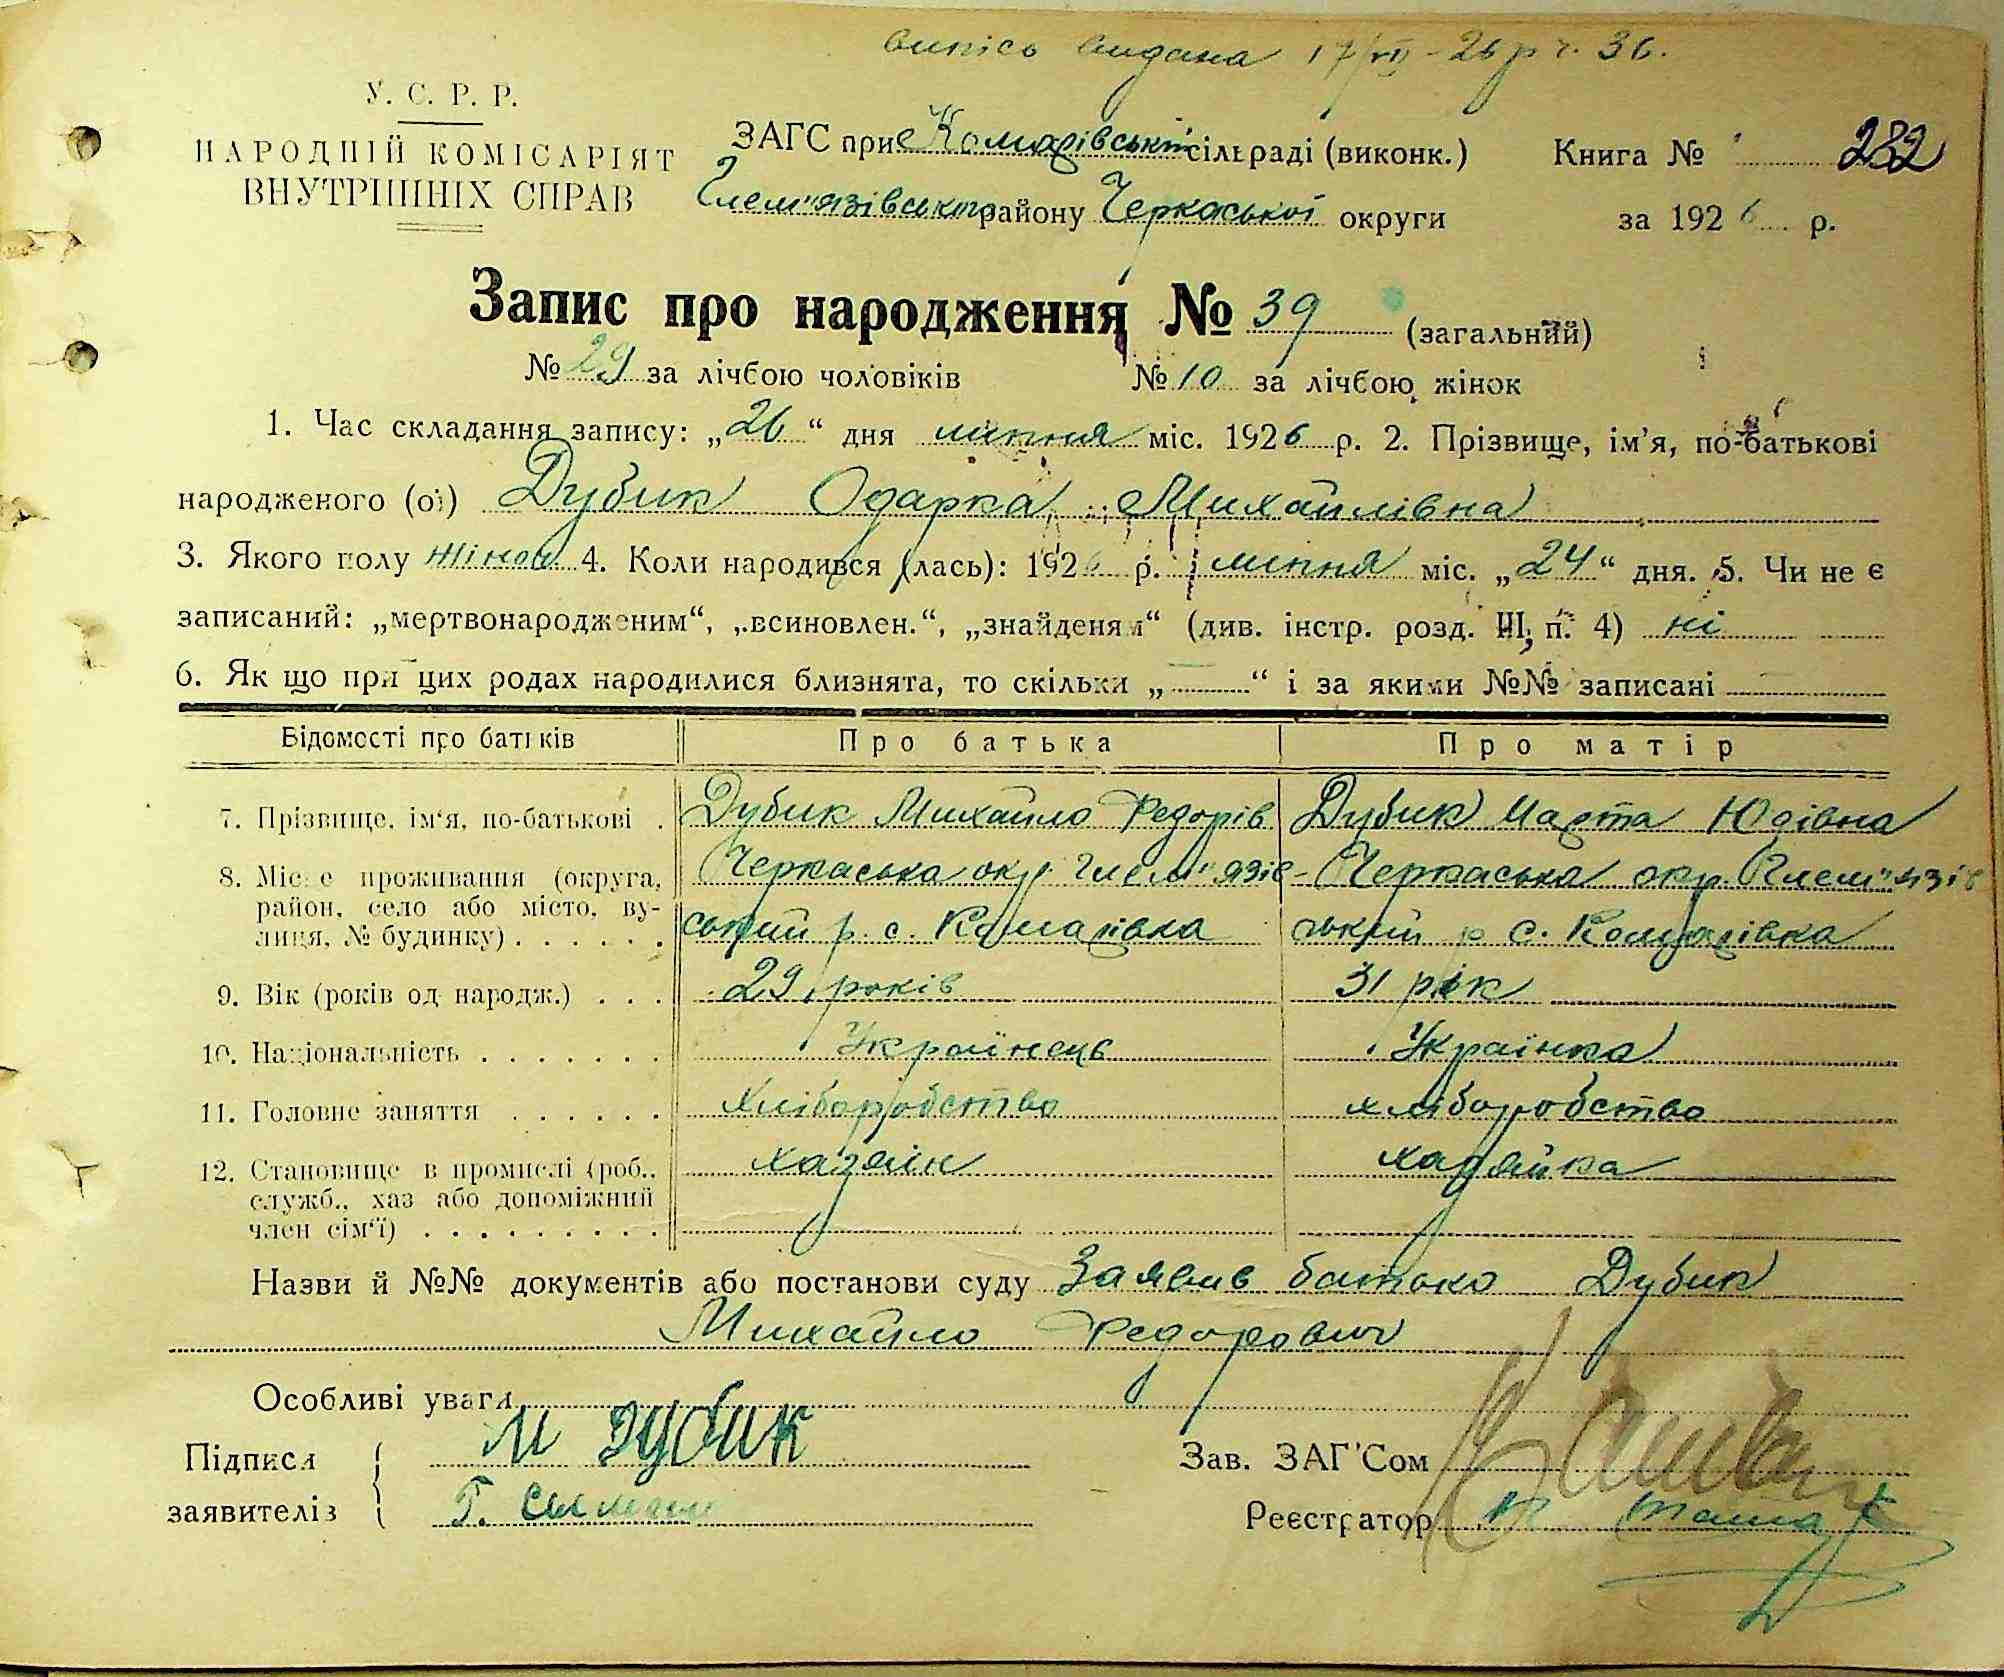 випись видана 17/VII-26 р ч. 36.
У. С. Р. Р.
НАРОДНІЙ КОМІСАРІЯТ
ВНУТРІШНІХ СПРАВ
ЗАГС при Комарівській сільраді (виконк.) Книга № 232
Гельм'язівського району Черкаської округи за 1926 р.
Запис про народження № 39 (загальний)
№ 29 за лічбою чоловіків № 10 за лічбою жінок
1. Час складання запису: „26“ дня липня міс. 1926 р. 2. Прізвище, ім'я, по-батькові
народженого (ої) Дубик Одарка Михайлівна
3. Якого полу жіноч 4. Коли народився (лась): 1926 р. липня міс. „24“ дня. 5. Чи не є
записаний: „мертвонародженим“, „всиновлен.“, „знайденям“ (див. інстр. розд. III, п. 4) ні
6. Як що при цих родах народилися близнята, то скільки „ “ і за якими №№ записані
Відомості про батьків Про батька Про матір
7. Прізвище, ім'я, по-батькові . Дубик Михайло Федорів Дубик Марта Юдівна
8. Місце проживання (округа, район, село або місто, вулиця, № будинку) . . . . . .
Черкаська окр Глем'язів-
ський р. с. Комарівка
Черкаська окр. Глем'язів
ський р с. Комарівка
9. Вік (років од народж.) . . . 29 років 31 рік
10. Національність . . . . . . . Українець Українка
11. Головне заняття . . . . . . хліборобство хліборобство
12. Становище в промислі (роб., хазяїн хазяйка
служб., хаз або допоміжний
член сім'ї) . . . . . . . . .
Назви й №№ документів або постанови суду Заявив батько Дубик
Михайло Федорович
Особливі уваги
Підписи заявителів М Дубик
Г.
Зав. ЗАГ'Сом
Реєстратор